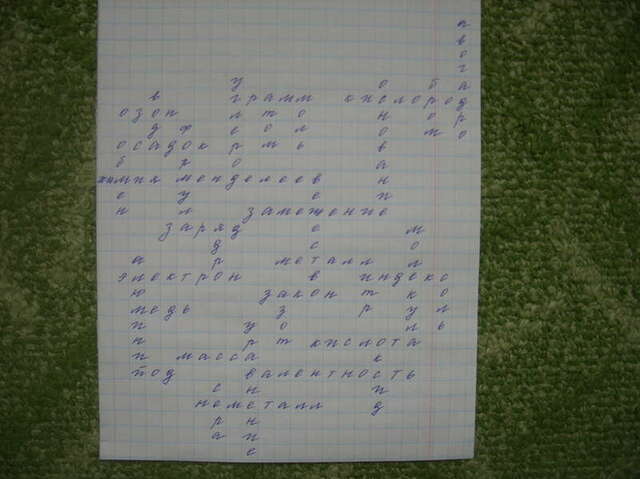 а
в
о
г
у о б а
в грамм кислород
озон л т о н о р
д ф е о л о м о
осадок р м ь в
б р о а
химия менделеев н
е у е и
н л замещение
заряд с м
д с о
а р металл л
электрон в индекс
ю закон т к о
медь з р у л
и у о л ь
н р т кислота
и масса к
йод валентность
с н и
неметалл д
р н
а и
е